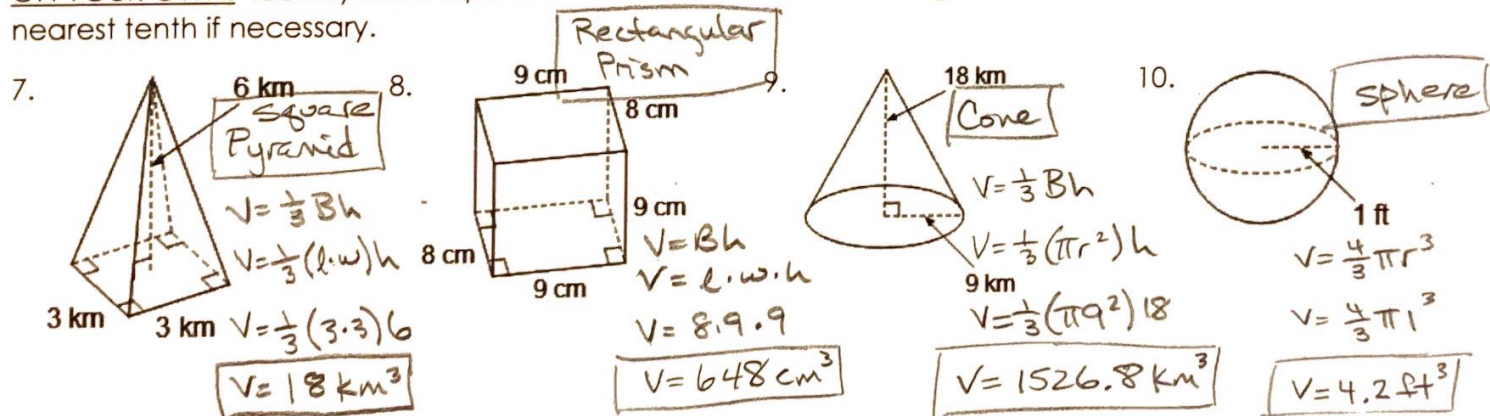 nearest tenth if necessary.
7.
6 km
square
Pyramid
V=⅓Bh
V=⅓(l·w)h
3 km
3 km
V=⅓(3·3)6
V=18km³
8.
Rectangular
Prism
9 cm
8 cm
9 cm
8 cm
9 cm
V=Bh
V=l·w·h
V=8·9·9
V=648cm³
9.
18 km
Cone
V=⅓Bh
V=⅓(πr²)h
9 km
V=⅓(π9²)18
V=1526.8km³
10.
sphere
1 ft
V=4/3πr³
V=4/3π1³
V=4.2ft³